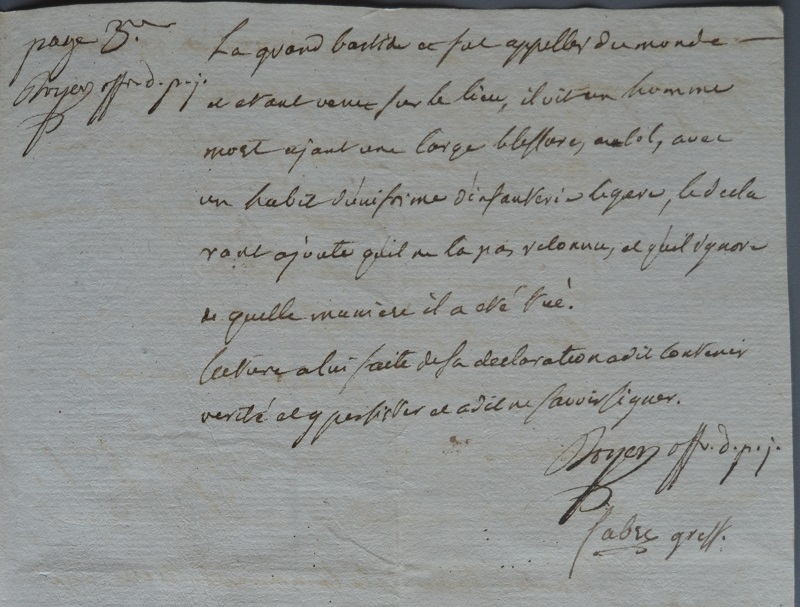 page 3.e
Boyer off. d. p. j.
La quand bastide et fut appeller du monde
et etant venu sur le lieu, il vit un homme
mort ajant une large blessure, au col, avec
un habit d'uniforme d'infanterie legere, le decla
rant ajoute qu'il ne la pas reconnu, et qu'il ignore
de quelle maniere il a eté tué.
lecture a lui faite de sa declaration a dit contenir
verité et y persister et a dit ne savoir signer.
Boyer off. d. p. j.
fabre greff.